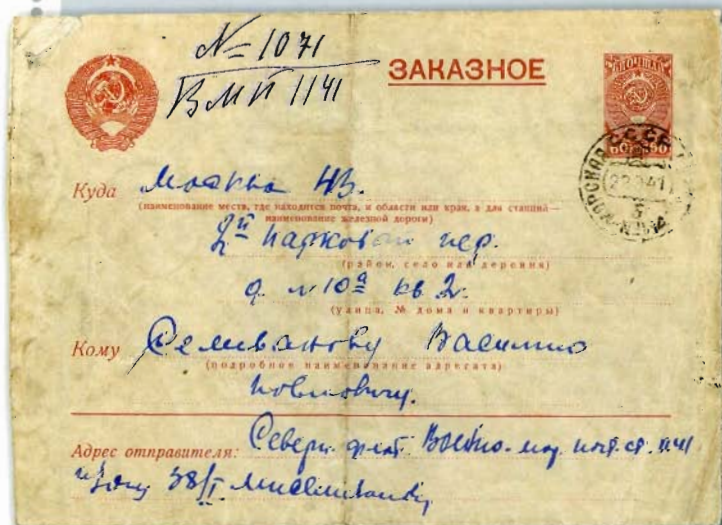 № 1071
ВМП 1141
ЗАКАЗНОЕ
ПОЧТА
Куда Москва 43.
(наименование места, где находится почта, и области или края, а для станций—
наименование железной дороги)
2й Парковый пер.
(район, село или деревня)
д. № 10а кв 2.
(улица, № дома и квартиры)
Кому Селиванову Василию
(подробное наименование адресата)
Адрес отправителя: Северн. флот Военно-мор. почт. ст. 1141